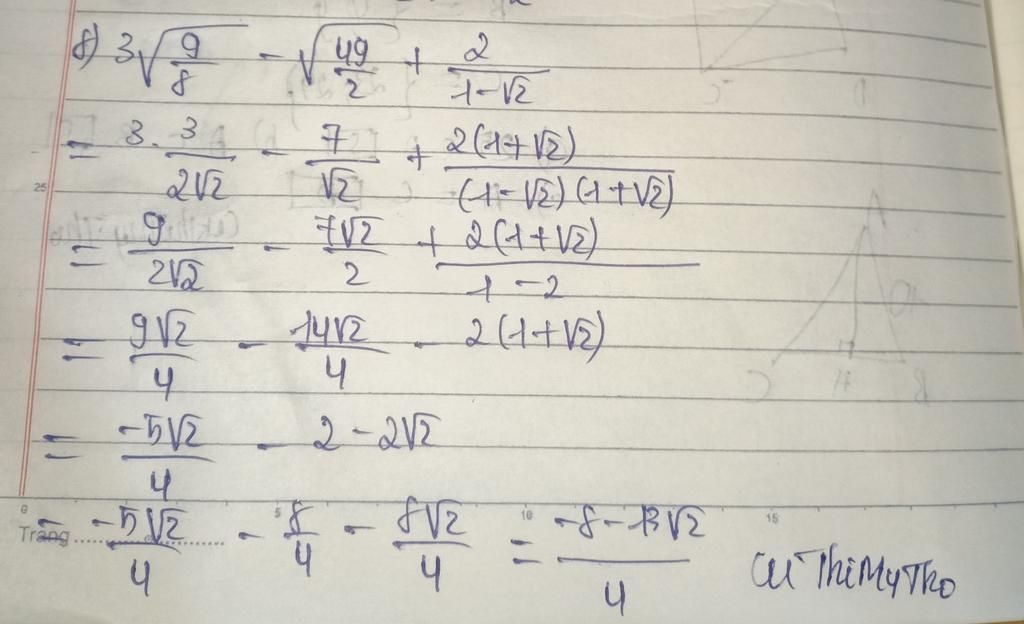 8) 3√(9/8) - √(49/2) + 2/(1-√2)
= 3. 3/(2√2) - 7/√2 + 2(1+√2)/((1-√2)(1+√2))
25
= 9/(2√2) - 7√2/2 + 2(1+√2)/(1-2)
= 9√2/4 - 14√2/4 - 2(1+√2)
= -5√2/4 - 2 - 2√2
0 5 10 15
Trang
= -5√2/4 - 8/4 - 8√2/4 = (-8-13√2)/4
CuThiMyTho